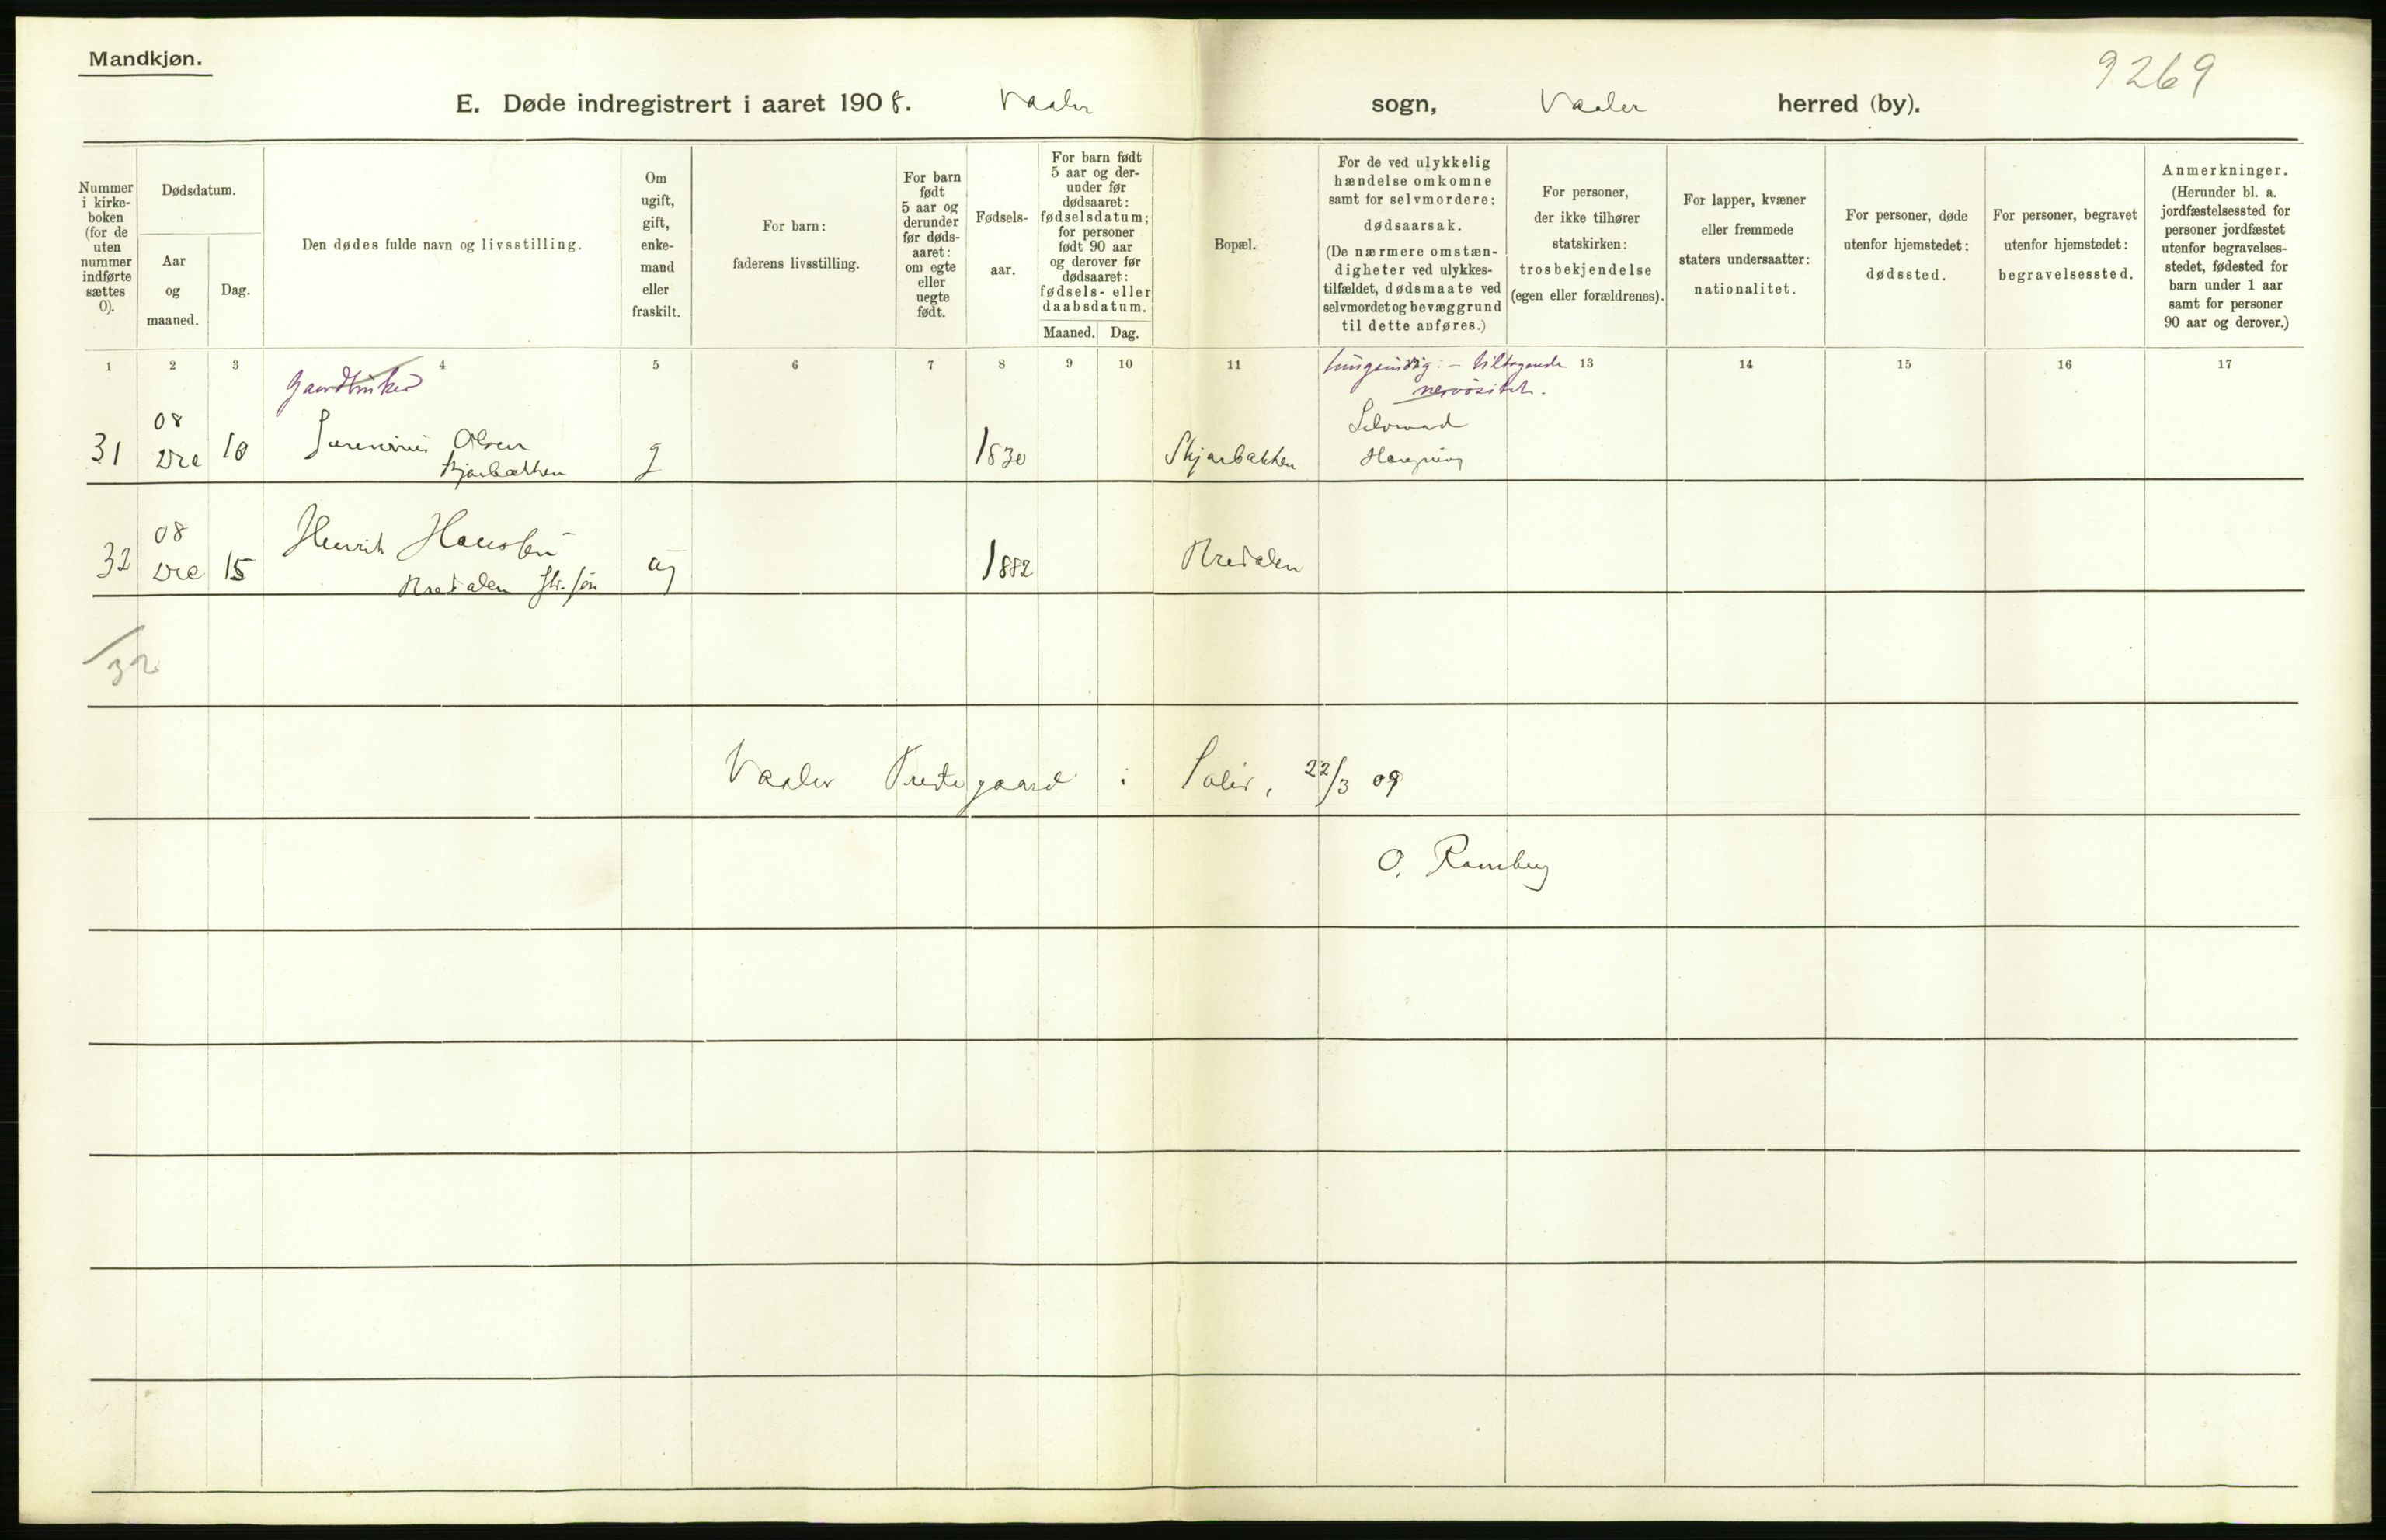 Mandkjøn.
9269
E. Døde indregistrert i aaret 1908. Vaaler sogn, Vaaler herred (by).
Nummer
i kirke-
boken
(for de
uten
nummer
indførte
sættes
0).
Dødsdatum.
Aar
og
maaned.
Dag.
Den dødes fulde navn og livsstilling.
Om
ugift,
gift,
enke-
mand
eller
fraskilt.
For barn:
faderens livsstilling.
For barn
født
5 aar og
derunder
før døds-
aaret:
om egte
eller
uegte
født.
Fødsels-
aar.
For barn født
5 aar og der-
under før
dødsaaret:
fødselsdatum;
for personer
født 90 aar
og derover før
dødsaaret:
fødsels- eller
daabsdatum.
Maaned. Dag.
Bopæl.
For de ved ulykkelig
hændelse omkomne
samt for selvmordere:
dødsaarsak.
(De nærmere omstæn-
digheter ved ulykkes-
tilfældet, dødsmaate ved
selvmordet og bevæggrund
til dette anføres.)
For personer,
der ikke tilhører
statskirken:
trosbekjendelse
(egen eller forældrenes).
For lapper, kvæner
eller fremmede
staters undersaatter:
nationalitet.
For personer, døde
utenfor hjemstedet:
dødssted.
For personer, begravet
utenfor hjemstedet:
begravelsessted.
Anmerkninger.
(Herunder bl. a.
jordfæstelsessted for
personer jordfæstet
utenfor begravelses-
stedet, fødested for
barn under 1 aar
samt for personer
90 aar og derover.)
1 2 3 4 5 6 7 8 9 10 11 12 13 14 15 16 17
Gaardbruker
tungsindig. – tiltagende
nervøsitet.
08 Selvmord
31 Dec 10 Olsen g 1830 Skjærbakken Hængning
Skjærbakken
08 Henrik Hansen
32 Dec 15 ug 1882 Bredalen
Bredalen søn
32
Vaaler Prestegaard i Solør, 22/3 09
O. Ramberg